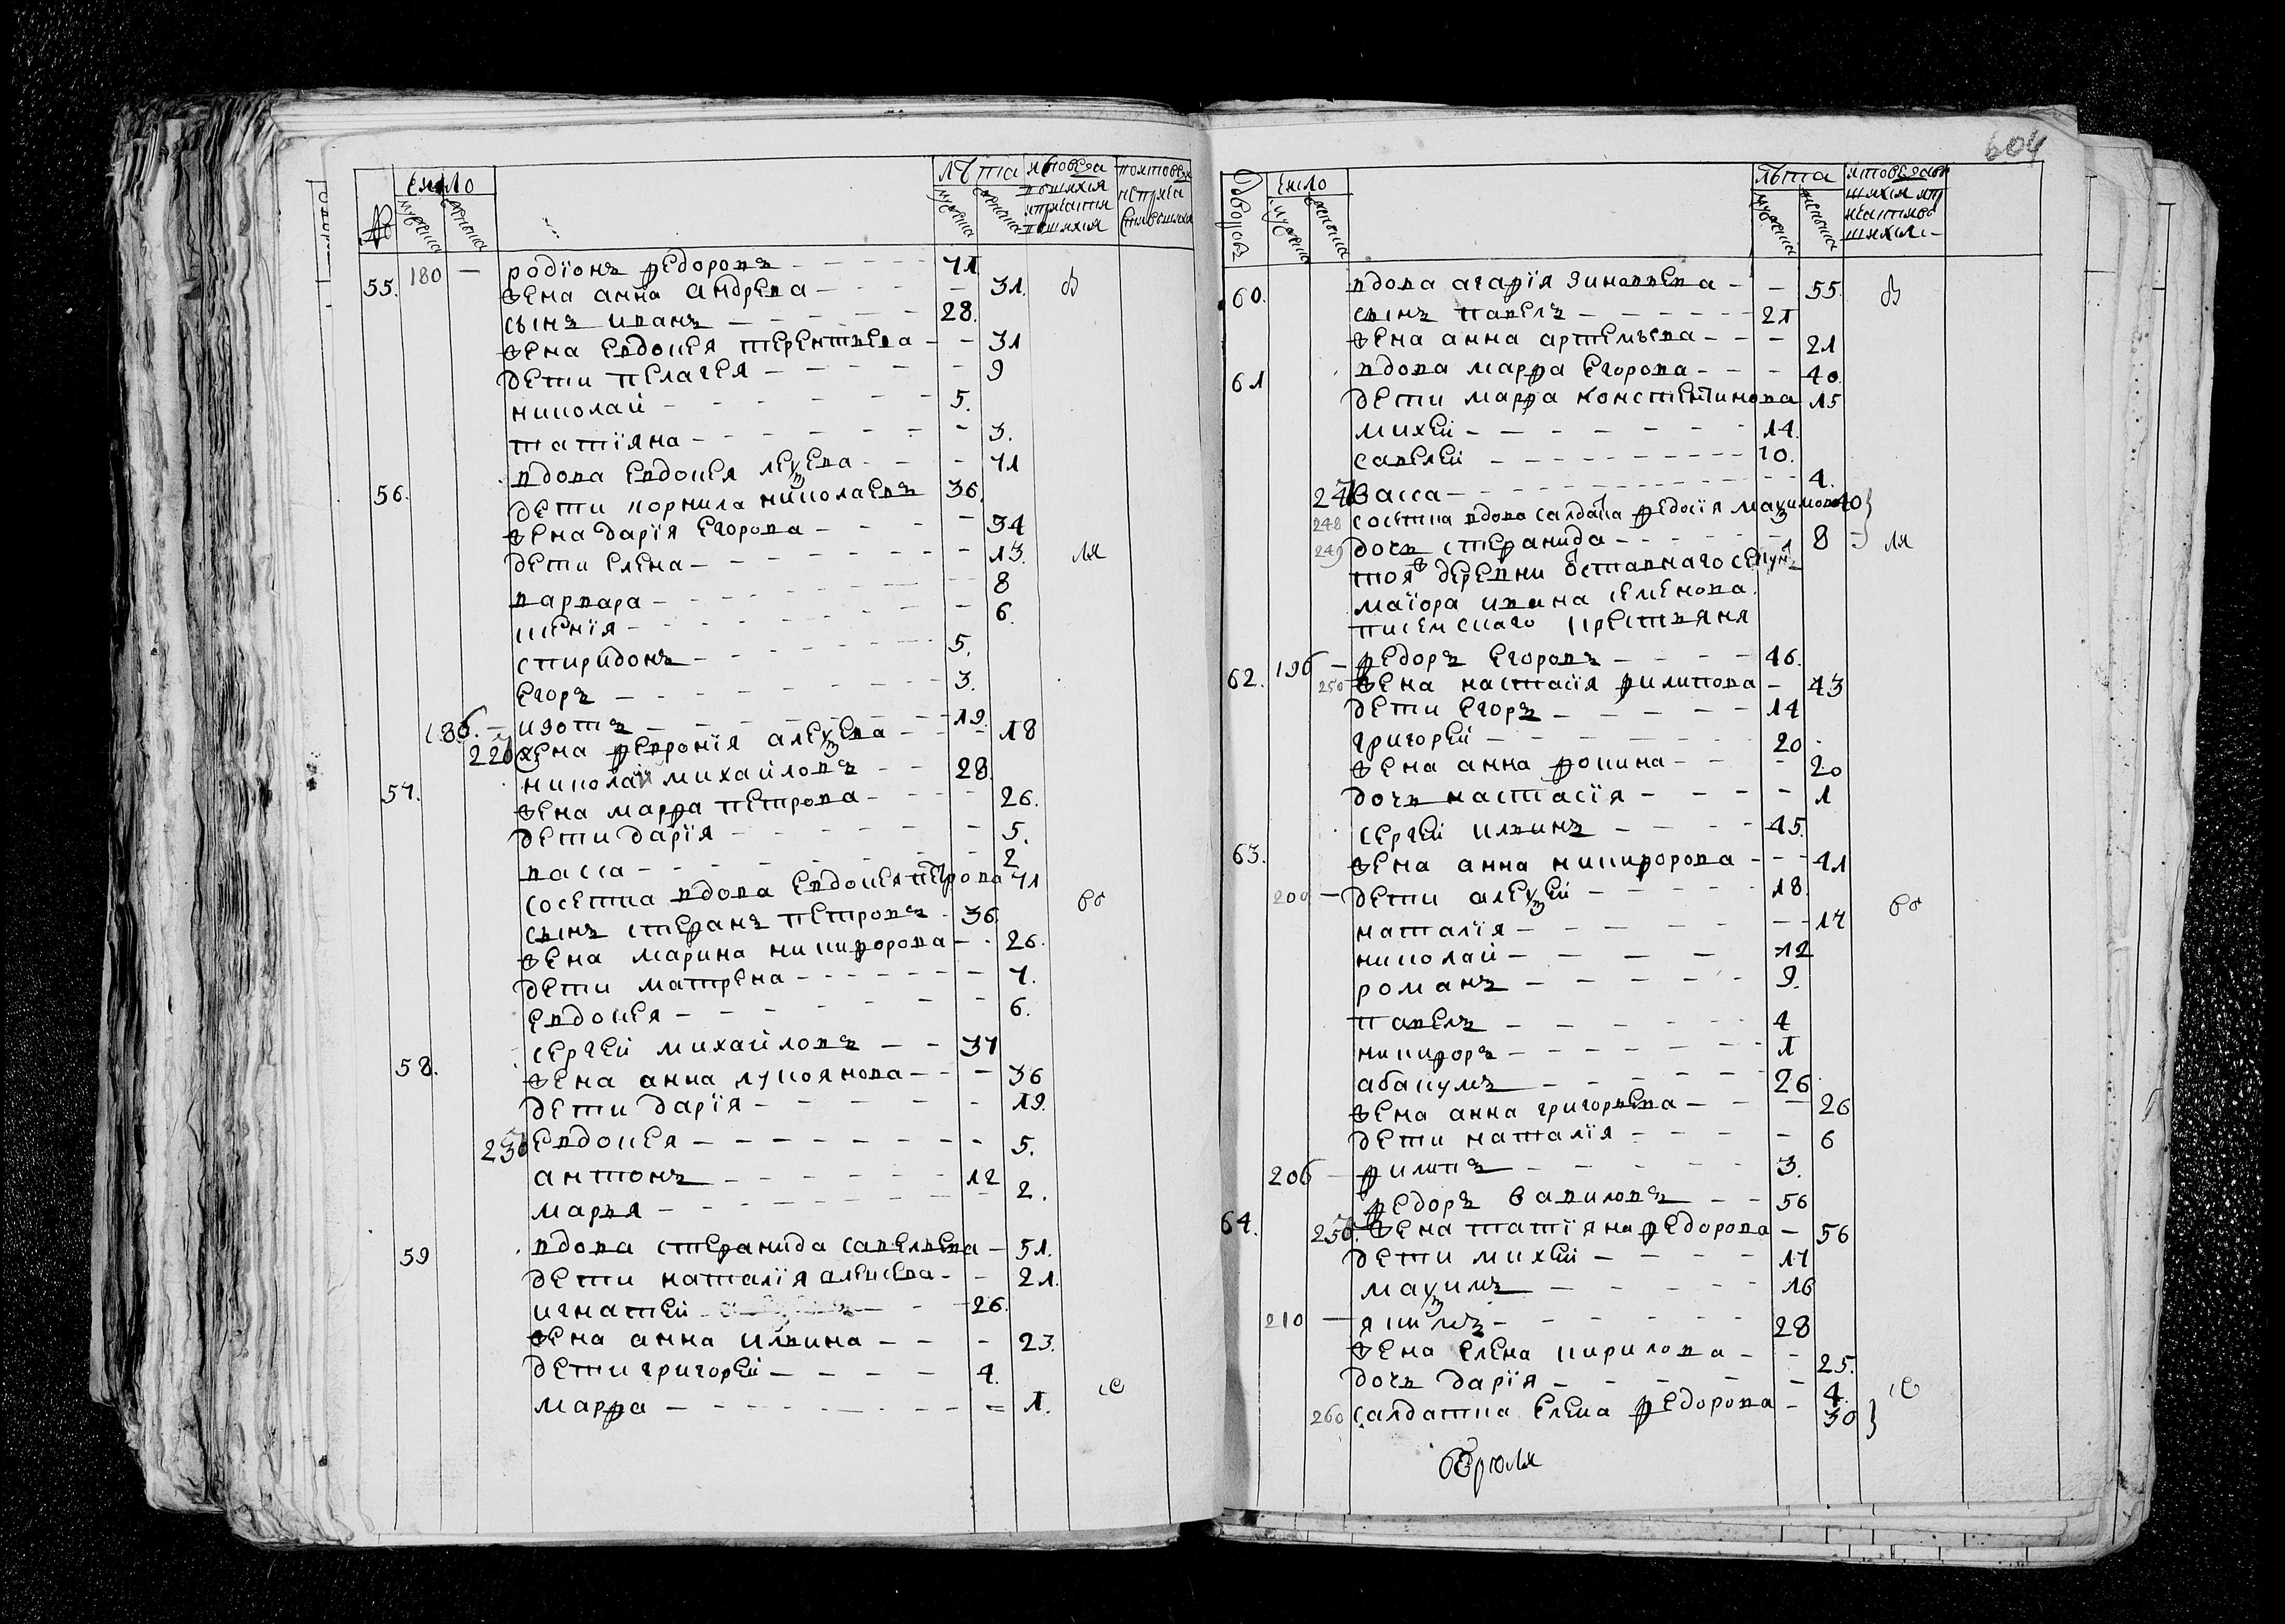 № число лѣта исповеда поисповед
мужеска женска мужеска женска вшихся и причастившихся не приобщившихся
55. 180 — родїонъ ѳедоровъ 71
жена анна андрева 31. В
сынъ иванъ 28.
жена евдокея терентьева 31
дети пелагея 9
николай 5.
татїяна 3.
56. вдова евдокея леѯева 71
дети кормила николаевъ 36.
жена дарїя егорова 34
дети елена 13. ля
варвара 8
ксенїя 6.
спиридонъ 5.
егоръ 3.
186. изотъ 19.
220 жена ѳевронїя алеѯева 18
57. николай михайловъ 28.
жена марѳа петрова 26.
дети дарїя 5.
васса 2
сосетка вдова евдокея петрова 71
сынъ стеѳанъ петровъ 36 бо
жена марина никиѳорова 26.
дети матрена 7.
евдокея 6.
58. сергей михайловъ 37
жена анна лукоянова 36
дети дарїя 19.
230 евдокея 5.
антонъ 12
марья 2.
59 вдова стеѳанида савельева 51.
дети наталїя алексева 21.
игнатей 26.
жена анна ильина 23.
дети григорей 4.
марѳа 1. ис
604
дворовъ число лѣта исповедав
мужеска женска мужеска женска шихся и при
частивших
60. вдова агарїя зиновьева 55. В
сынъ павелъ 21
жена анна артемьева 21
61 вдова марѳа егорова 40.
дети марѳа константинова 15
михей 14.
савелей 10.
247 васса 4.
248 сосетка вдова салдатка ѳедосїя маѯимова 40
249 дочь стеѳанида 8 ля
тоя ж деревни отставнаго секунъ
маїора ивана семенова
писемскаго крестьяня
62. 196 — ѳедоръ егоровъ 46.
250 жена настасїя ѳилипова 43
дети егоръ 14
григорей 20
жена анна ѳокина 20
дочь настасїя 1
63. сергей ильинъ 45.
жена анна никиѳорова 41
200 — дети алеѯей 18. бо
наталїя 17
николай 12
романъ 9.
павелъ 4
никиѳоръ 1
абакумъ 26
жена анна григорьева 26
дети наталїя 6
206 — ѳилипъ 3.
64. ѳедоръ вавиловъ 56
256. жена татїяна ѳедорова 56
дети михей 17
маѯимъ 16
210 — якимъ 28
жена елена кирилова 25.
дочь дарїя 4. ис
260 салдатка елена ѳедорова 30